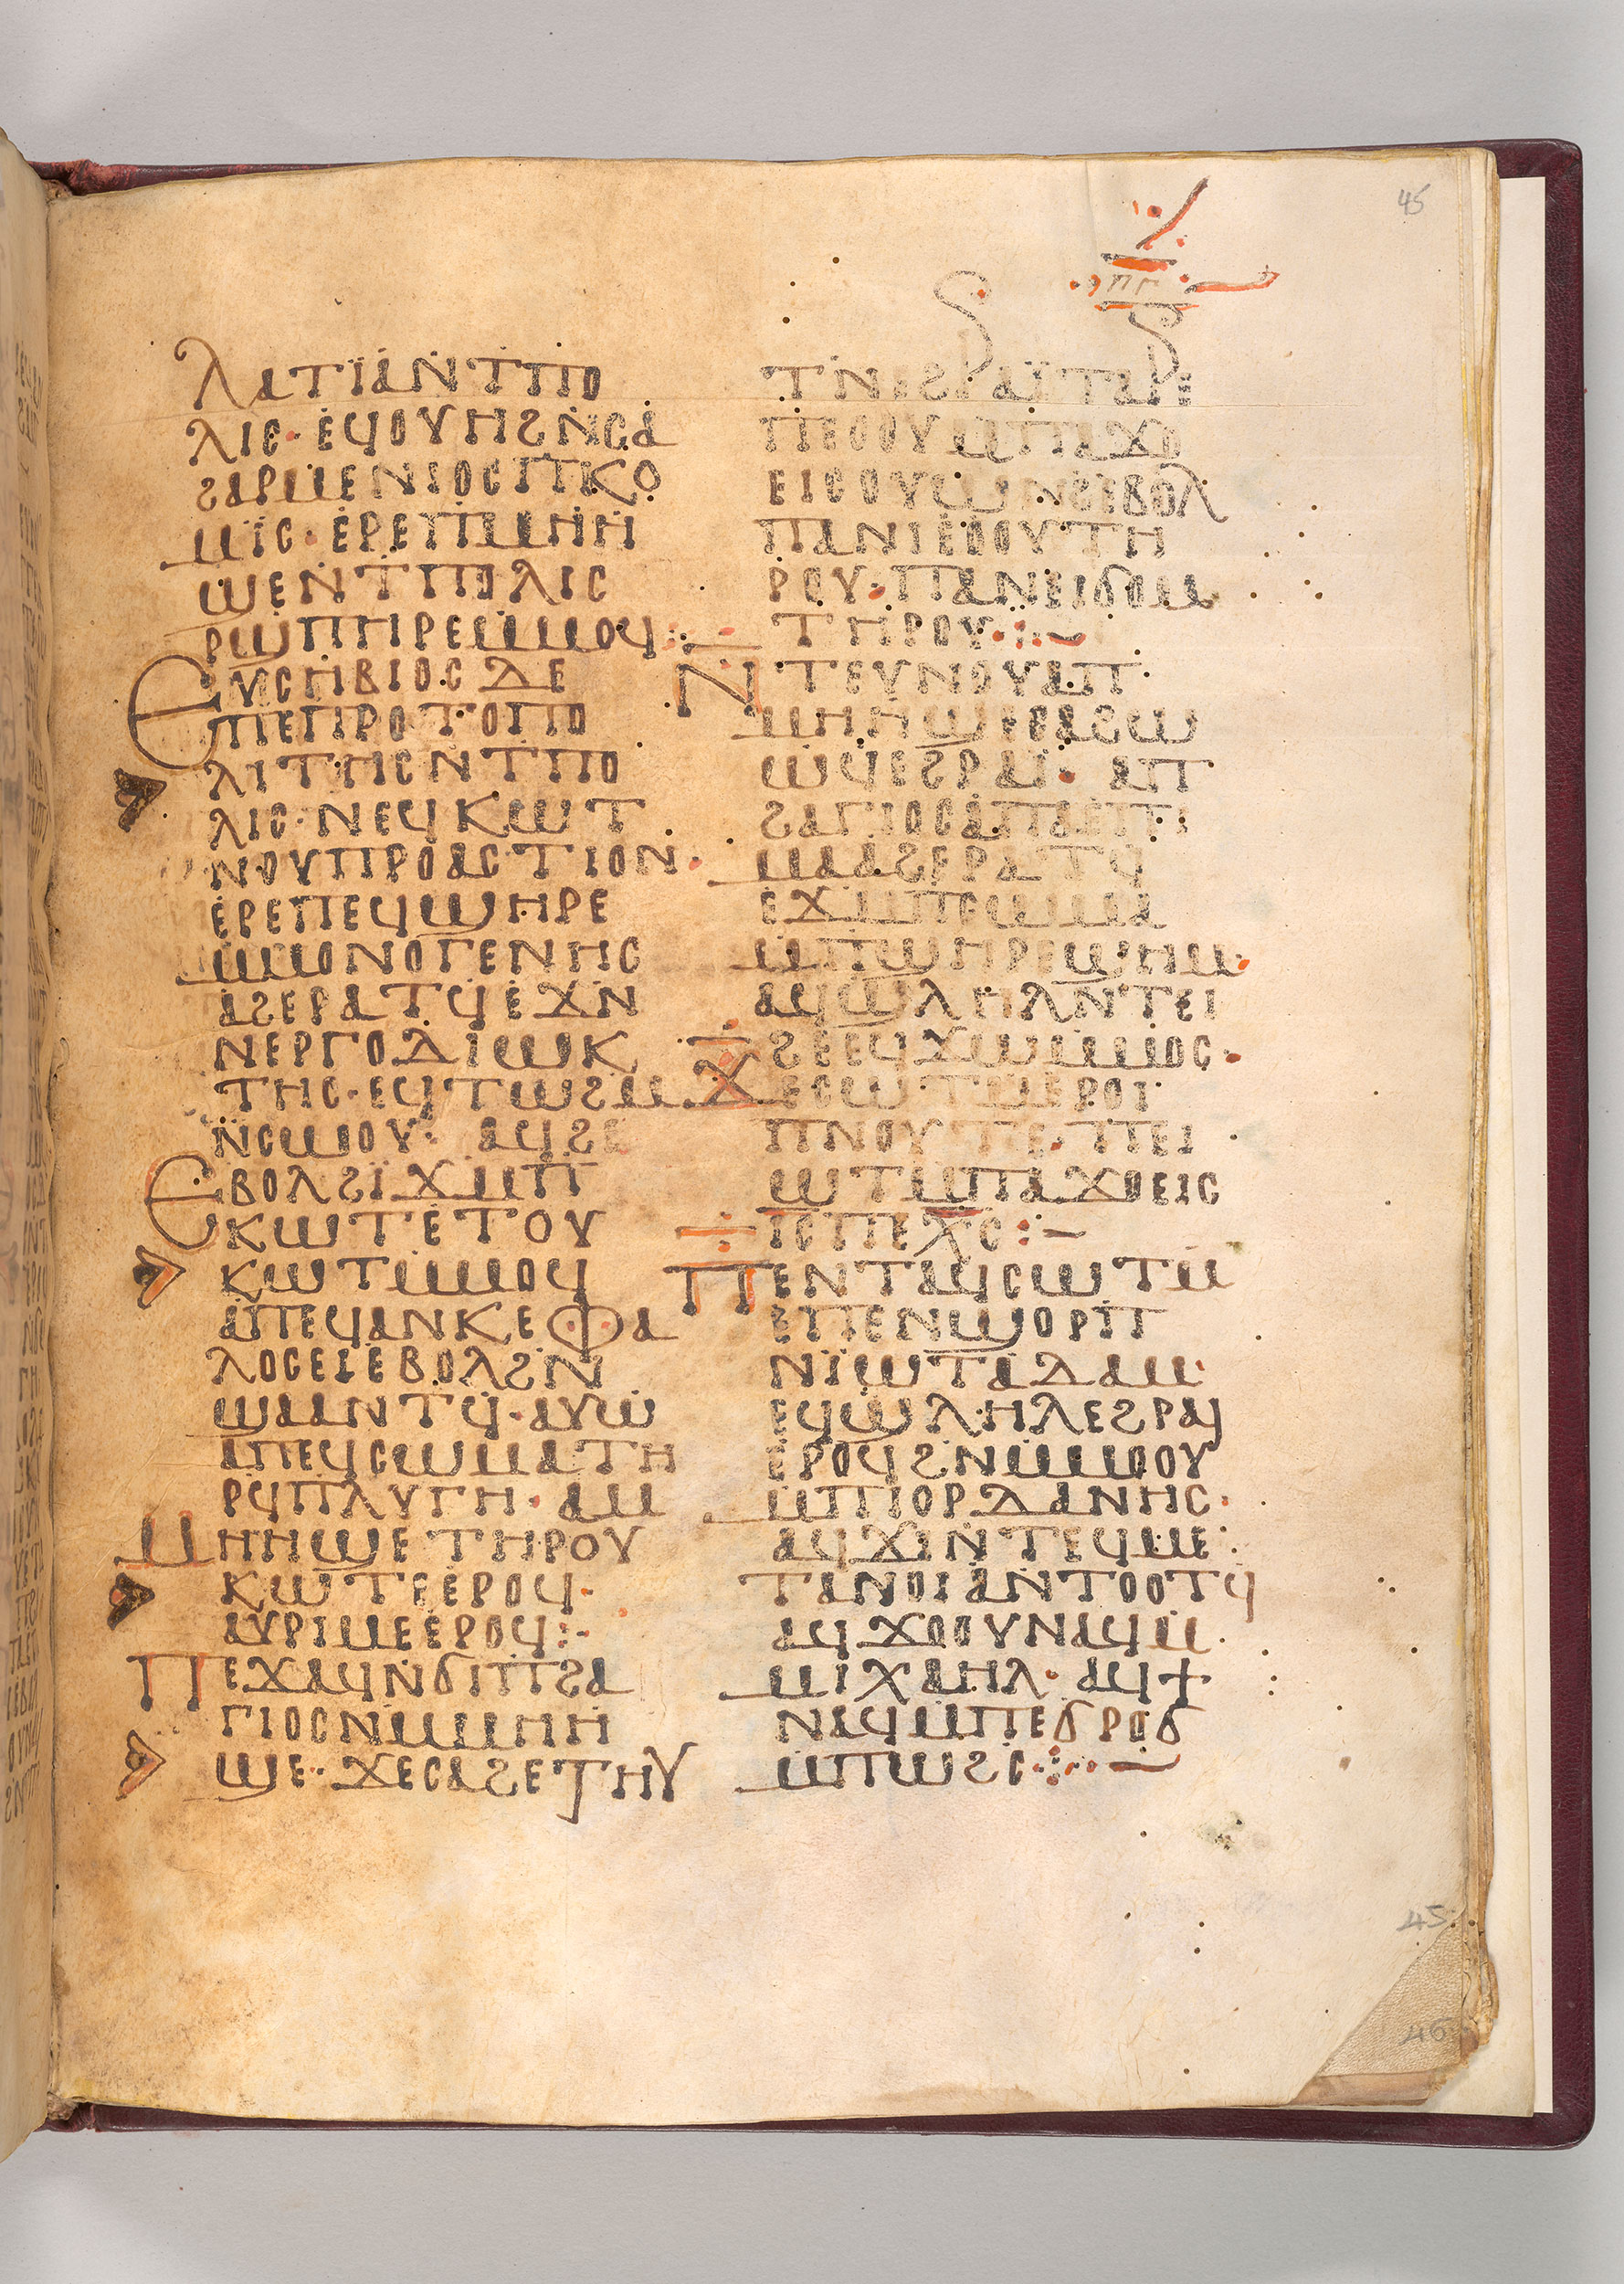 45
ⲡⲅ
ⲗⲁⲧⲓⲁ ⲛⲧⲡⲟ
ⲗⲓⲥ· ⲉϥⲟⲩⲏϩ ⲛⲥⲁ
ϩⲁⲣⲙⲉⲛⲓⲟⲥ ⲡⲕⲟ
ⲙⲓⲥ· ⲉⲣⲉⲡⲙⲏⲏ
ϣⲉ ⲛⲧⲡⲟⲗⲓⲥ
ⲣϣⲡⲏⲣⲉ ⲙⲙⲟϥ :–
ⲉⲩⲥⲏⲃⲓⲟⲥ ⲇⲉ
ⲡⲉⲡⲣⲟⲧⲟⲡⲟ
ⲗⲓⲧⲏⲥ ⲛⲧⲡⲟ
ⲗⲓⲥ· ⲛⲉϥⲕⲱⲧ
ⲛⲟⲩⲡⲣⲟⲁⲥⲧⲓⲟⲛ·
ⲉⲣⲉⲡⲉϥϣⲏⲣⲉ
ⲙⲙⲟⲛⲟⲅⲉⲛⲏⲥ
ⲁϩⲉⲣⲁⲧϥ ⲉϫⲛ
ⲛⲉⲣⲅⲟⲇⲓⲱⲕ
ⲧⲏⲥ· ⲉϥⲧⲱϩⲙ
ⲛⲥⲱⲟⲩ· ⲁϥϩⲉ
ⲉⲃⲟⲗ ϩⲓϫⲙⲡ
ⲉⲕⲱⲧ ⲉⲧⲟⲩ
ⲕⲱⲧ ⲙⲙⲟϥ
ⲁⲡⲉϥⲁⲛⲕⲉⲫⲁ
ⲗⲟⲥ ⲉⲓ ⲉⲃⲟⲗϩⲛ
ϣⲁⲁⲛⲧϥ· ⲁⲩⲱ
ⲁⲡⲉϥⲥⲱⲙⲁ ⲧⲏ
ⲣϥ ⲡⲗⲩⲅⲏ· ⲁⲙ
ⲙⲏⲏϣⲉ ⲧⲏⲣⲟⲩ
ⲕⲱⲧⲉ ⲉⲣⲟϥ·
ⲁⲩⲣⲓⲙⲉ ⲉⲣⲟϥ :–
ⲡⲉϫⲁϥ ⲛϭⲓⲡϩⲁ
ⲅⲓⲟⲥ ⲛⲙⲙⲏⲏ
ϣⲉ· ϫⲉⲥⲁϩⲉⲧⲏⲩ
ⲧⲛ ⲉϩⲣⲁⲓ ⲧⲁⲣⲉ
ⲡⲉⲟⲟⲩ ⲙⲡⲁϫⲟ
ⲉⲓⲥ ⲟⲩⲱⲛϩ ⲉⲃⲟⲗ
ⲡⲁⲛⲓⲉⲟⲟⲩ ⲧⲏ
ⲣⲟⲩ· ⲡⲁⲛⲉⲓϭⲟⲙ
ⲧⲏⲣⲟⲩ :–
ⲛⲧⲉⲩⲛⲟⲩ ⲁⲡ
ⲙⲏⲏϣⲉ ⲥⲁϩⲱ
ⲱϥ ⲉϩⲣⲁⲓ· ⲁⲡ
ϩⲁⲅⲓⲟⲥ ⲁⲡⲁ ⲉⲡⲓ
ⲙⲁ ⲁϩⲉⲣⲁⲧϥ
ⲉϫⲙⲡⲉⲥⲱⲙⲁ
ⲙⲡϣⲏⲣⲉ ϣⲏⲙ·
ⲁϥϣⲗⲏⲗ ⲛⲧⲉⲓ
ϩⲉ ⲉϥϫⲱ ⲙⲙⲟⲥ·
ϫⲉⲥⲱⲧⲙ ⲉⲣⲟⲓ
ⲡⲛⲟⲩⲧⲉ· ⲡⲉⲓ
ⲱⲧ ⲙⲡⲁϫⲟⲉⲓⲥ
ⲓⲥ ⲡⲉⲭⲥ :–
ⲡⲉⲛⲧⲁϥⲥⲱⲧⲙ
ⲉⲡⲉⲛϣⲟⲣⲡ
ⲛⲓⲱⲧ ⲁⲇⲁⲙ·
ⲉϥϣⲗⲏⲗ ⲉϩⲣⲁⲓ
ⲉⲣⲟϥ ϩⲛⲙⲙⲟⲟⲩ
ⲙⲡⲓⲟⲣⲇⲁⲛⲏⲥ·
ⲁϥϫⲓ ⲛⲧⲉϥⲙⲉ
ⲧⲁⲛⲟⲓⲁ ⲛⲧⲟⲟⲧϥ
ⲁϥϫⲟⲟⲩ ⲛⲁϥ ⲙ
ⲙⲓⲭⲁⲏⲗ· ⲁϥϯ
ⲛⲁϥ ⲙⲡⲉϭⲣⲟϭ
ⲙⲡⲱϩⲥ :–
45
46